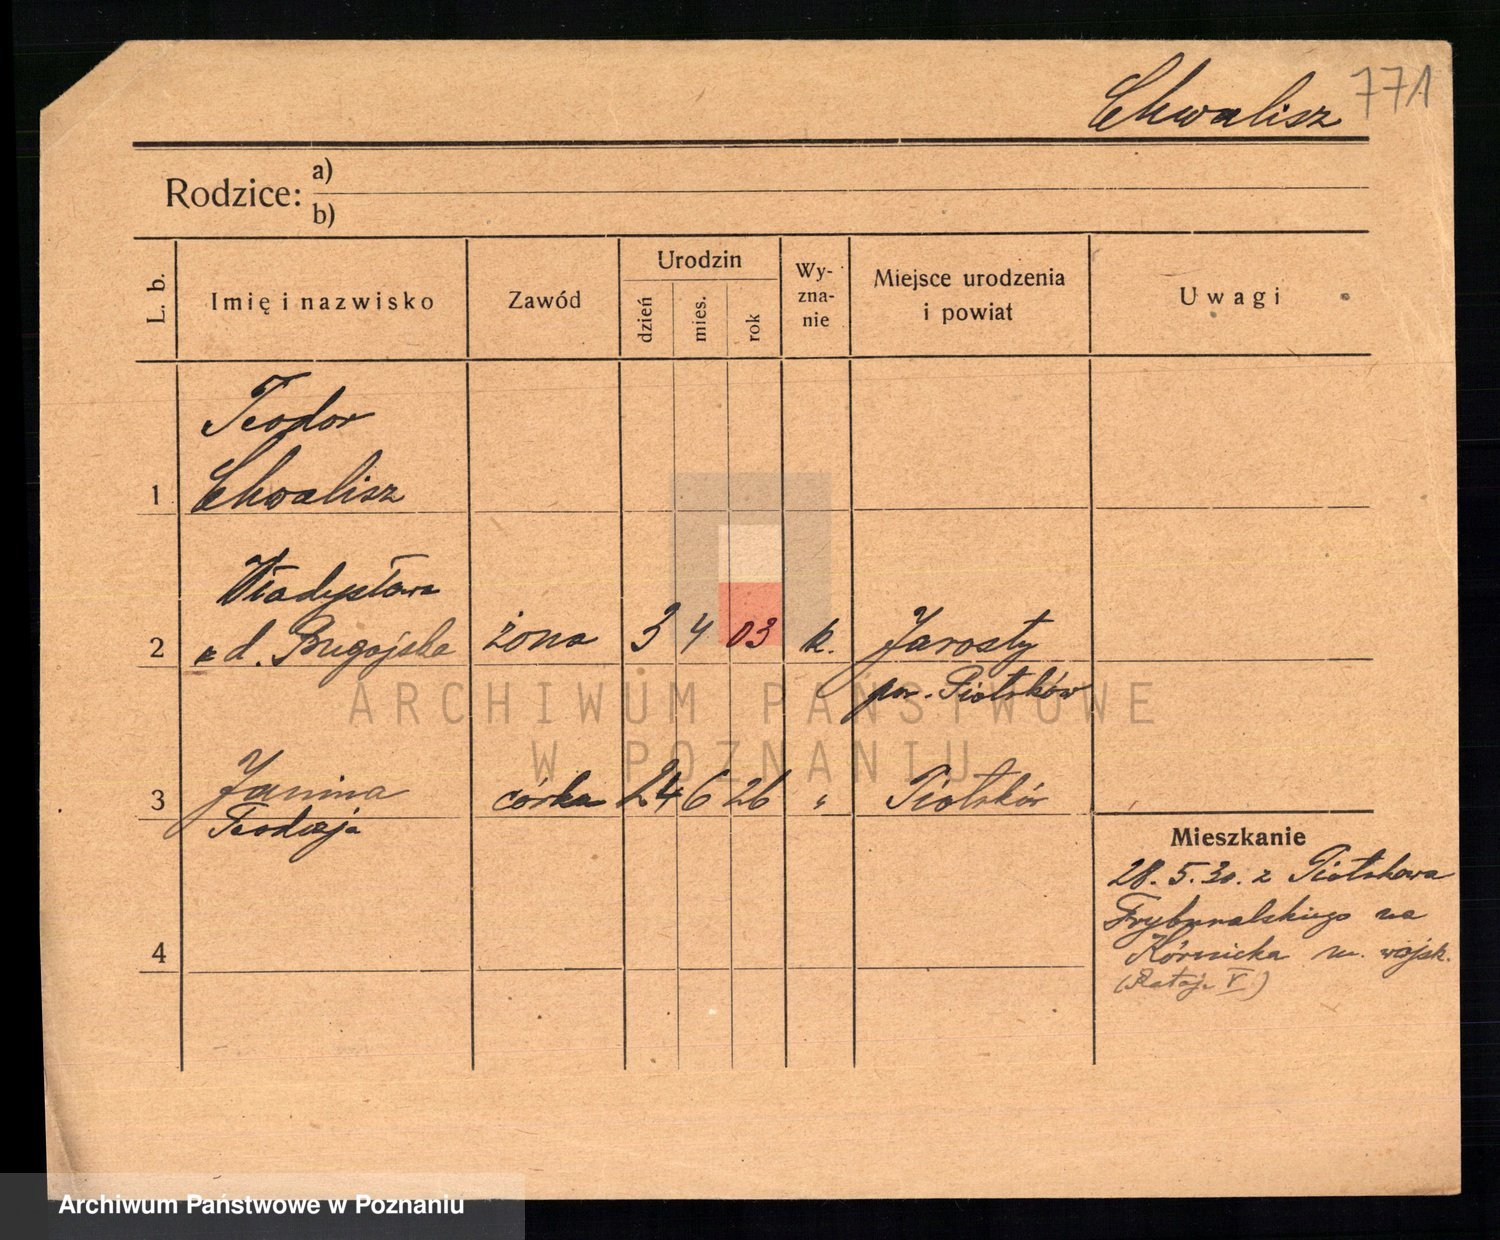 Chwalisz 771
Rodzice: a)
b)
L. b. Imię i nazwisko Zawód Urodzin dzień mies. rok Wy-zna-nie Miejsce urodzenia i powiat Uwagi
Teodor
1 Chwalisz
Władysława
2 z d. Bugajska żona 3 4 03 k. Jarosty
pow. Piotrków
3 Janina córka 24 6 26 " Piotrków
Teodozja
Mieszkanie
28. 5. 30. z Piotrkowa
Trybunalskiego na
4 Kórnicka m. wojsk.
(Rataj. V.)
ARCHIWUM PAŃSTWOWE
W POZNANIU
Archiwum Państwowe w Poznaniu